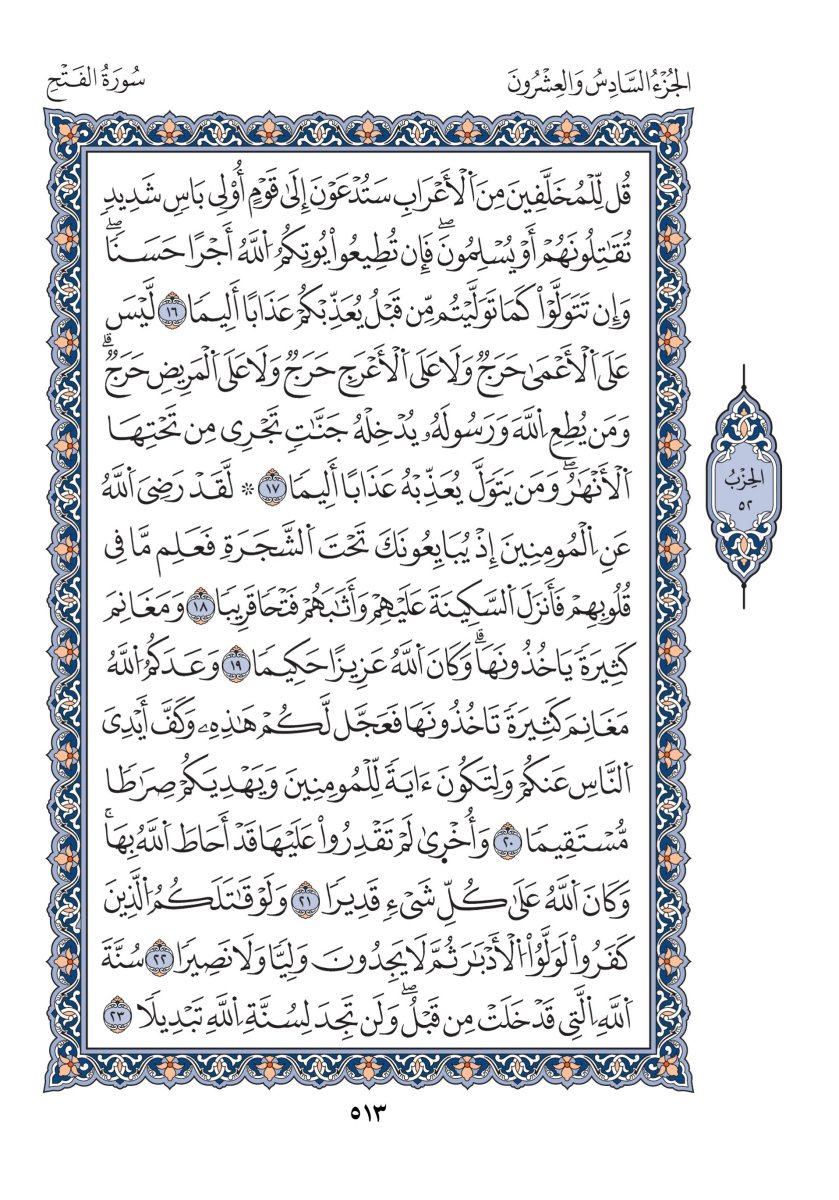 الجُزْءُ السَّادِسُ وَالعِشْرُونَ
سُورَةُ الفَتْحِ
قُل لِّلْمُخَلَّفِينَ مِنَ اَ۬لْأَعْرَابِ سَتُدْعَوْنَ إِلَىٰ قَوْمٍ أُوْلِي بَاسٍ شَدِيدٍ
تُقَٰتِلُونَهُمْ أَوْ يُسْلِمُونَۖ فَإِن تُطِيعُواْ يُوتِكُمُ اُ۬للَّهُ أَجْرًا حَسَنًاۖ
وَإِن تَتَوَلَّوْاْ كَمَا تَوَلَّيْتُم مِّن قَبْلُ يُعَذِّبْكُمْ عَذَابًا أَلِيمًا ١٦ لَّيْسَ
عَلَى اَ۬لْأَعْمَىٰ حَرَجٌ وَلَا عَلَى اَ۬لْأَعْرَجِ حَرَجٌ وَلَا عَلَى اَ۬لْمَرِيضِ حَرَجٌۗ
وَمَن يُطِعِ اِ۬للَّهَ وَرَسُولَهُۥ يُدْخِلْهُ جَنَّٰتٍ تَجْرِي مِن تَحْتِهَا
اَ۬لْأَنْهَٰرُۖ وَمَن يَتَوَلَّ يُعَذِّبْهُ عَذَابًا أَلِيمًا ١٧ ۞ لَّقَدْ رَضِيَ اَ۬للَّهُ
عَنِ اِ۬لْمُومِنِينَ إِذْ يُبَايِعُونَكَ تَحْتَ اَ۬لشَّجَرَةِ فَعَلِم مَّا فِي
قُلُوبِهِمْ فَأَنزَلَ اَ۬لسَّكِينَةَ عَلَيْهِمْ وَأَثَٰبَهُمْ فَتْحًا قَرِيبًا ١٨ وَمَغَانِمَ
كَثِيرَةً يَاخُذُونَهَاۗ وَكَانَ اَ۬للَّهُ عَزِيزًا حَكِيمًا ١٩ وَعَدَكُمُ اُ۬للَّهُ
مَغَانِمَ كَثِيرَةً تَاخُذُونَهَا فَعَجَّل لَّكُمْ هَٰذِهِۦ وَكَفَّ أَيْدِيَ
اَ۬لنَّاسِ عَنكُمْ وَلِتَكُونَ ءَايَةً لِّلْمُومِنِينَ وَيَهْدِيَكُمْ صِرَٰطًا
مُّسْتَقِيمًا ٢٠ وَأُخْر۪ىٰ لَمْ تَقْدِرُواْ عَلَيْهَا قَدْ أَحَاطَ اَ۬للَّهُ بِهَاۚ
وَكَانَ اَ۬للَّهُ عَلَىٰ كُلِّ شَيْءٍ قَدِيرًا ٢١ وَلَوْ قَٰتَلَكُمُ اُ۬لَّذِينَ
كَفَرُواْ لَوَلَّوُاْ اُ۬لْأَدْبَٰرَ ثُمَّ لَا يَجِدُونَ وَلِيًّا وَلَا نَصِيرًا ٢٢ سُنَّةَ
اَ۬للَّهِ اِ۬لَّتِي قَدْ خَلَتْ مِن قَبْلُۖ وَلَن تَجِدَ لِسُنَّةِ اِ۬للَّهِ تَبْدِيلًا ٢٣
الحِزْبُ
٥٢
٥١٣